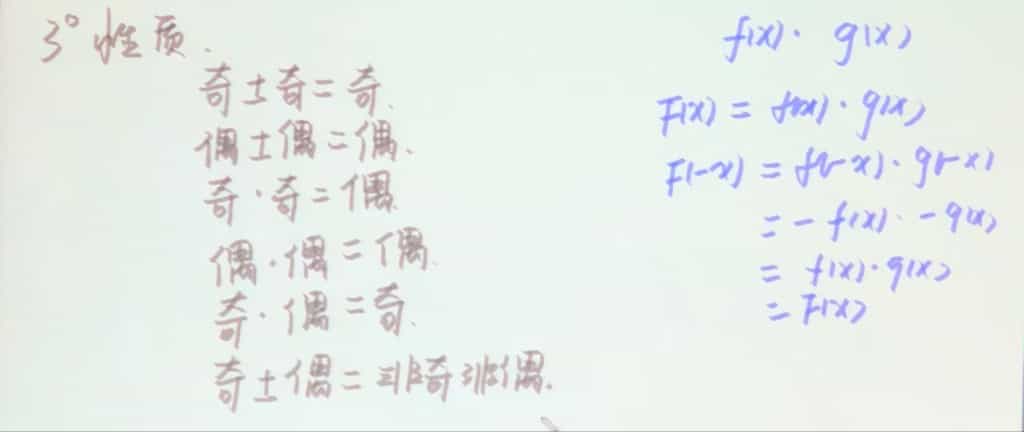 3° 性质.
奇±奇=奇.
偶±偶=偶.
奇·奇=偶.
偶·偶=偶.
奇·偶=奇.
奇±偶=非奇非偶.
f(x)· g(x)
F(x) = f(x)·g(x)
F(-x) = f(-x)·g(-x)
= -f(x)· -g(x)
= f(x)·g(x)
= F(x)